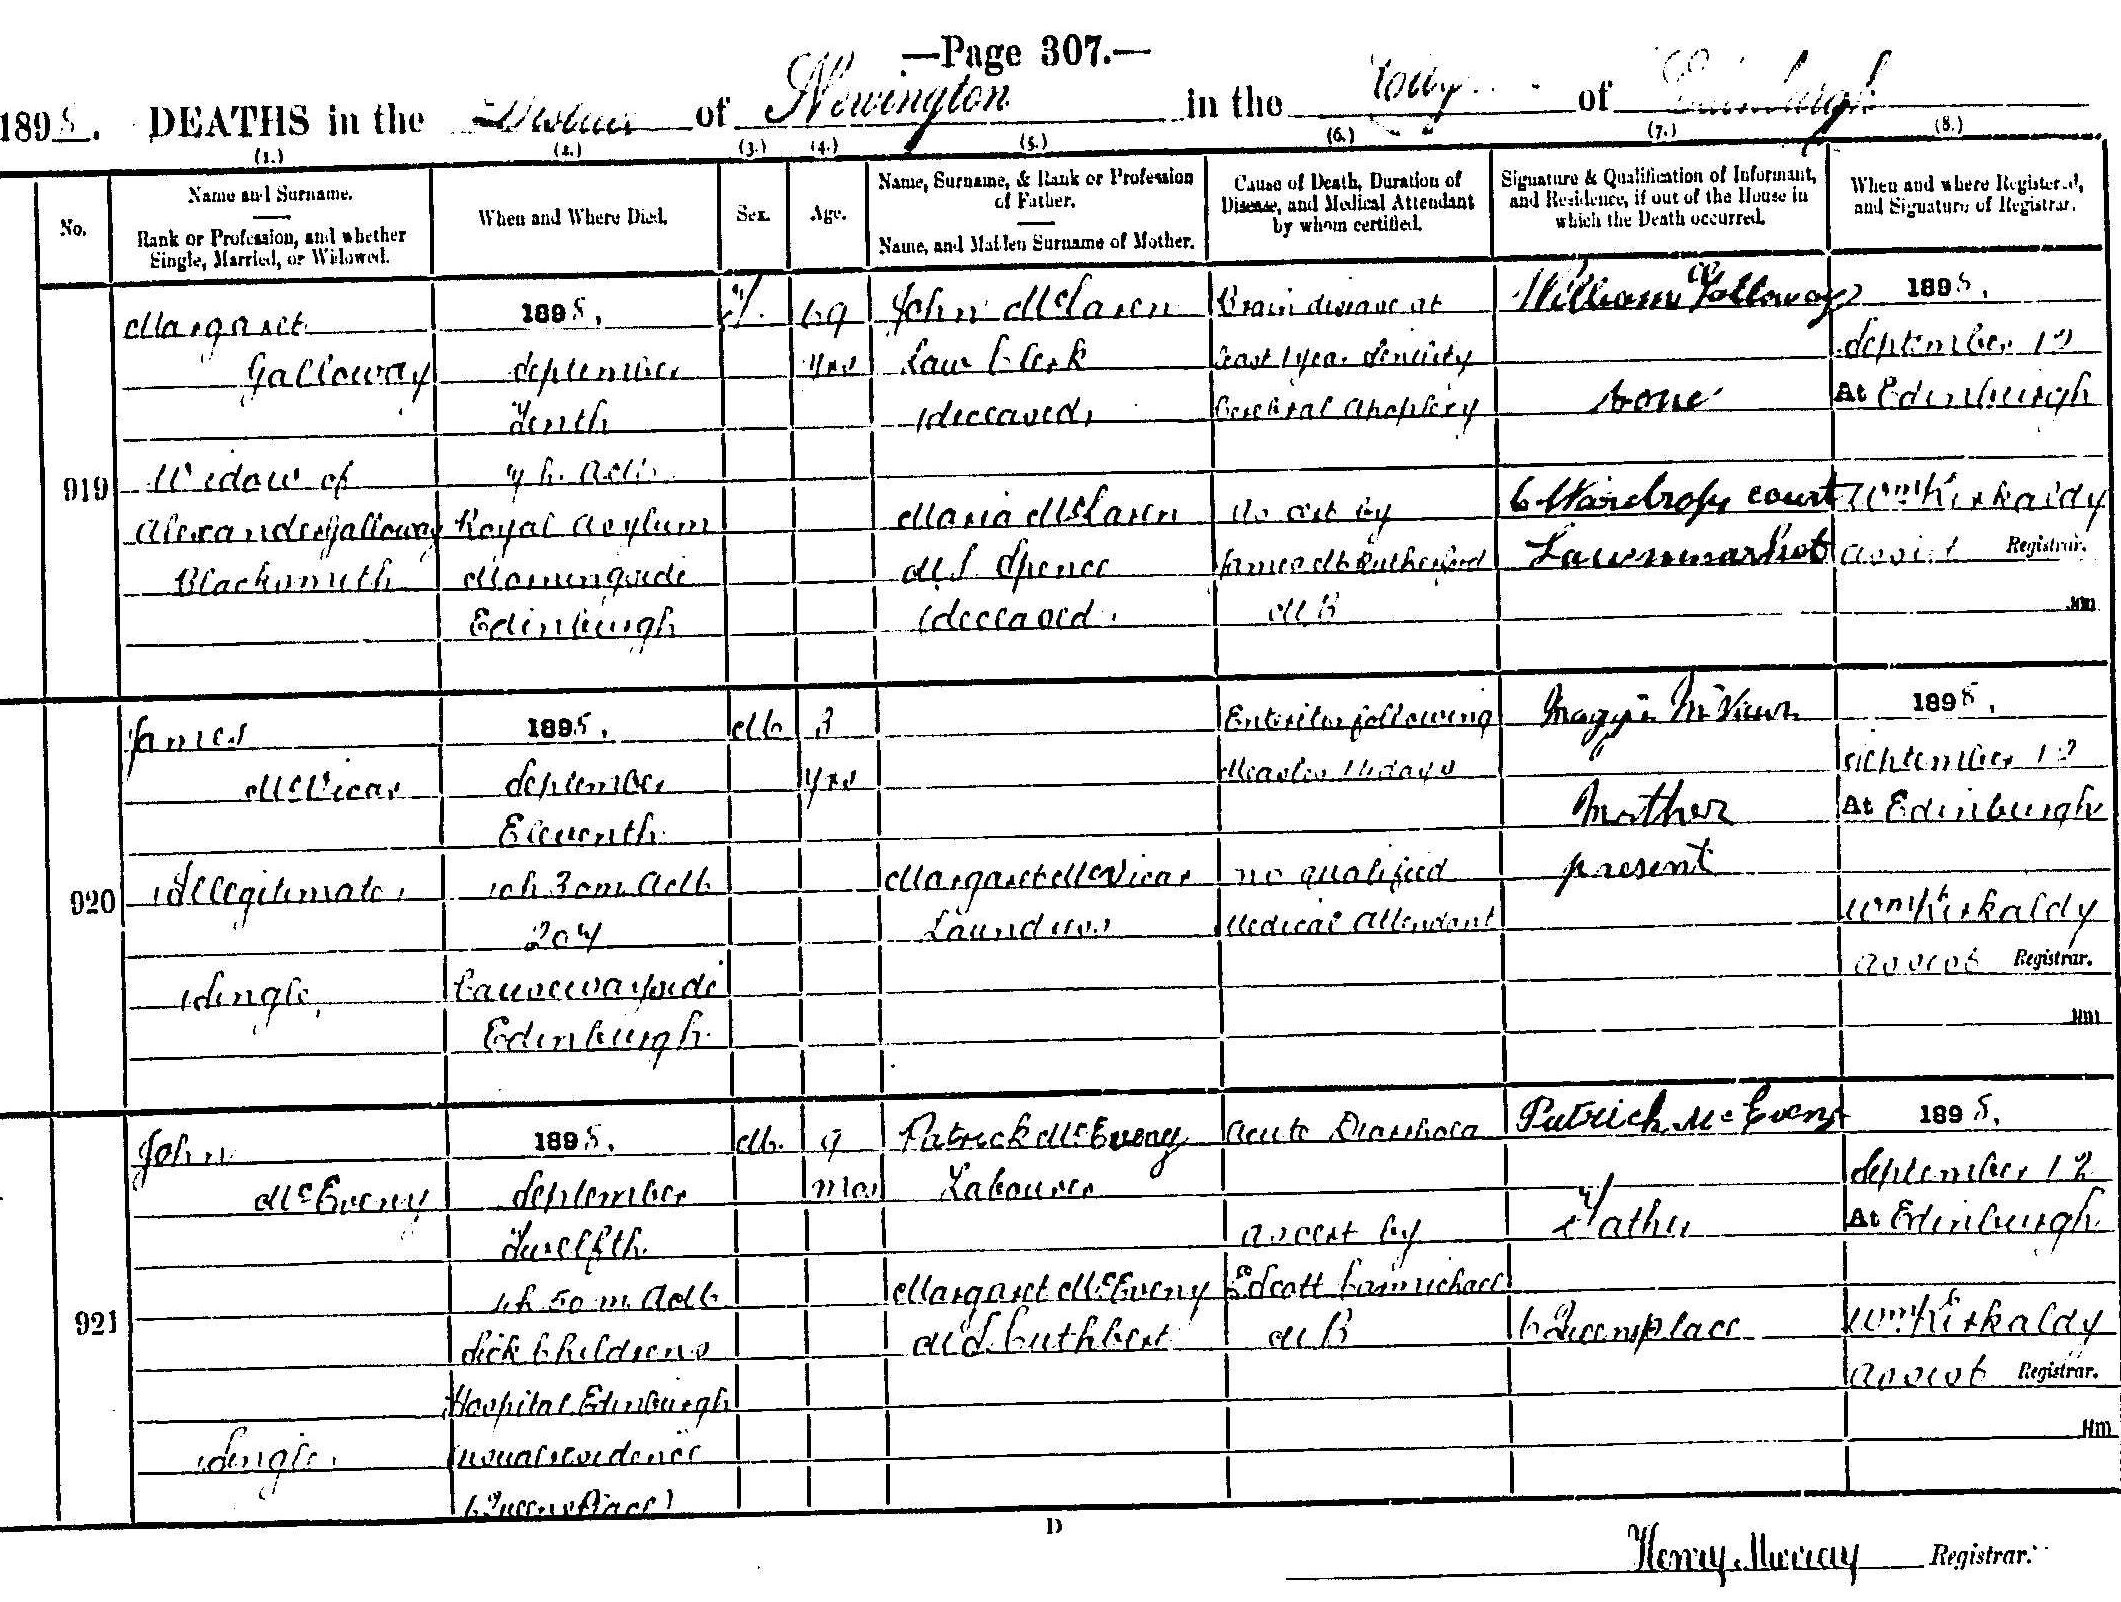 —Page 307.—
1895. DEATHS in the District of Newington in the City of Edinburgh
(1.) (2.) (3.) (4.) (5.) (6.) (7.) (8.)
No.
Name and Surname.
Rank or Profession, and whether
Single, Married, or Widowed.
When and Where Died.
Sex.
Age.
Name, Surname, & Rank or Profession
of Father.
Name, and Maiden Surname of Mother.
Cause of Death, Duration of
Disease, and Medical Attendant
by whom certified.
Signature & Qualification of Informant,
and Residence, if out of the House in
which the Death occurred.
When and where Registered,
and Signature of Registrar.
919
Margaret
Galloway
Widow of
Alexander Galloway
Blacksmith
1895,
September
Tenth
Royal Asylum
Morningside
Edinburgh
F.
69
yrs
John McLaren
Law Clerk
(deceased)
Maria McLaren
M.S. Spence
(deceased)
Brain disease at
least 1 year Senility
Cerebral Apoplexy
As cert by
James M Rutherford
M B
William Galloway
Son
6 Wardrop court
Lawnmarket
1895,
September 12
At Edinburgh
Wm Kirkaldy
assist Registrar.
HM
920
James
McVicar
(Illegitimate)
Single
1895,
September
Eleventh
10h 30m AM
207
Causewayside
Edinburgh
M
3
yrs
Margaret McVicar
Laundress
Enteritis following
Measles 14 days
no qualified
Medical Attendant
Maggie McVicar
Mother
present
1895,
September 12
At Edinburgh
Wm Kirkaldy
assist Registrar.
HM
921
John
McEveny
Single
1895,
September
Twelfth
1h 50m AM
Sick Childrens
Hospital Edinburgh
(usual residence
6 Queens Place)
M.
9
mos
Patrick McEveny
Labourer
Margaret McEveny
M.S. Cuthbert
Acute Diarrhoea
as cert by
E Scott Carmichael
M B
Patrick McEveny
Father
6 Queensplace
1895,
September 12
At Edinburgh
Wm Kirkaldy
assist Registrar.
HM
D
Henry Murray Registrar.